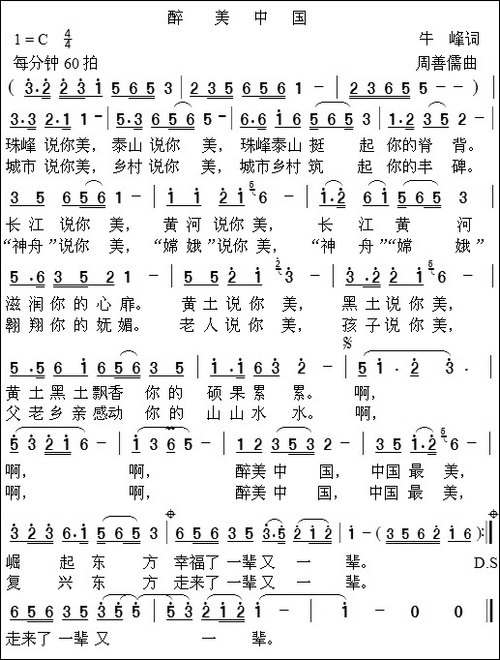 醉 美 中 国
1=C 4/4 牛 峰词
每分钟 60 拍 周善儒曲
( 3·2 2 3 1 5 6 5 3 | 2 3 5 6 1 - | 2 3 6 5 5 - - ) |
3·3 2 1 1 - | 5·3 5 6 5 - | 6·6 1 6 5 6 5 3 | 1·2 3 5 2 - |
珠峰 说你美, 泰山 说你 美, 珠峰泰山 挺 起 你的脊 背。
城市 说你美, 乡村 说你 美, 城市乡村 筑 起 你的丰 碑。
3 5 6 5 6 1 - | 1 1 2 1 6 - | 1·2 6 1 5 6 5 3 |
长 江 说你 美, 黄 河 说你 美, 长 江 黄 河
“神 舟”说你 美, “嫦 娥”说你 美, “神 舟”“嫦 娥”
5·6 3 5 2 1 - | 5 5 2 1 3 - | 3·2 2 1 6 - |
滋 润 你 的 心 扉。 黄 土 说 你 美, 黑 土 说 你 美,
翱 翔 你 的 妩 媚。 老 人 说 你 美, 孩 子 说 你 美,
5·5 6 1 5 6 5 3 | 2 5 1 6 3 2 - | 5 1 · 2 3 · |
黄 土 黑 土 飘香 你 的 硕 果 累 累。 啊,
父 老 乡 亲 感动 你 的 山 山 水 水。 啊,
5 3 2 1 6 - | 1 3 6 5 - | 1 2 3 5 3 - | 3 5 1·2 6 - |
啊, 啊, 醉美 中 国, 中国 最 美,
啊, 啊, 醉美 中 国, 中国 最 美,
3 2 3 6·1 5 6 5 3 | 6 5 6 3 5 3·5 2 1 2 | 1 - ( 3 5 6 2 1 6 ) :|
崛 起 东 方 幸福了 一辈 又 一 辈。 D.S
复 兴 东 方 走来了 一辈 又 一 辈。
6 5 6 3 5 3 5 5 | 5 3 2 1 2 1 - | 1 - 0 0 ‖
走来了 一辈 又 一 辈。